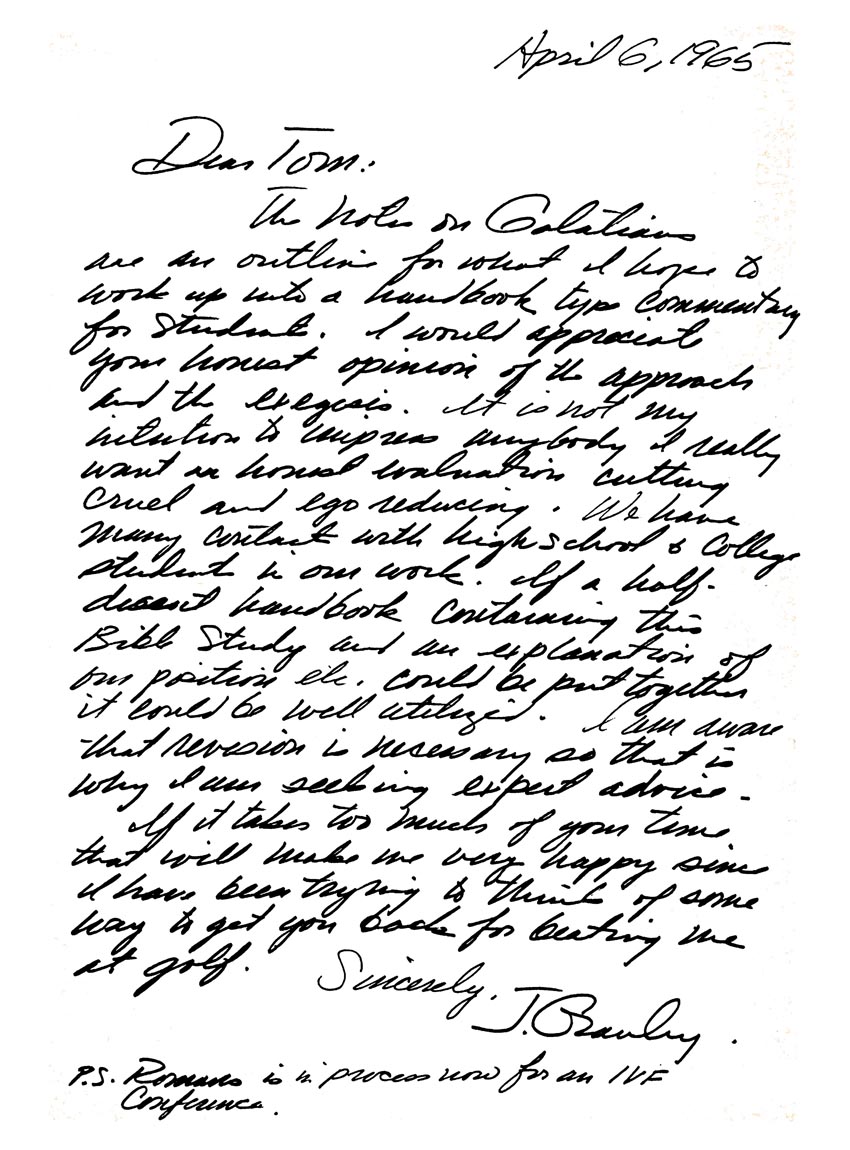 April 6, 1965
Dear Tom:
The notes on Galatians
are an outline for what I hope to
work up into a handbook type commentary
for students. I would appreciate
your honest opinion of the approach
and the exegesis. It is not my
intention to impress anybody I really
want an honest evaluation cutting
cruel and ego reducing. We have
many contact with high school & College
students in our work. If a half-
decent handbook containing this
Bible Study and an explanation of
our position etc. could be put together
it could be well utilized. I am aware
that revision is necessary so that is
why I am seeking expert advice.
If it takes too much of your time
that will make me very happy since
I have been trying to think of some
way to get you back for beating me
at golf.
Sincerely,
J.
P.S. Romans is in process now for an IVF
Conference.